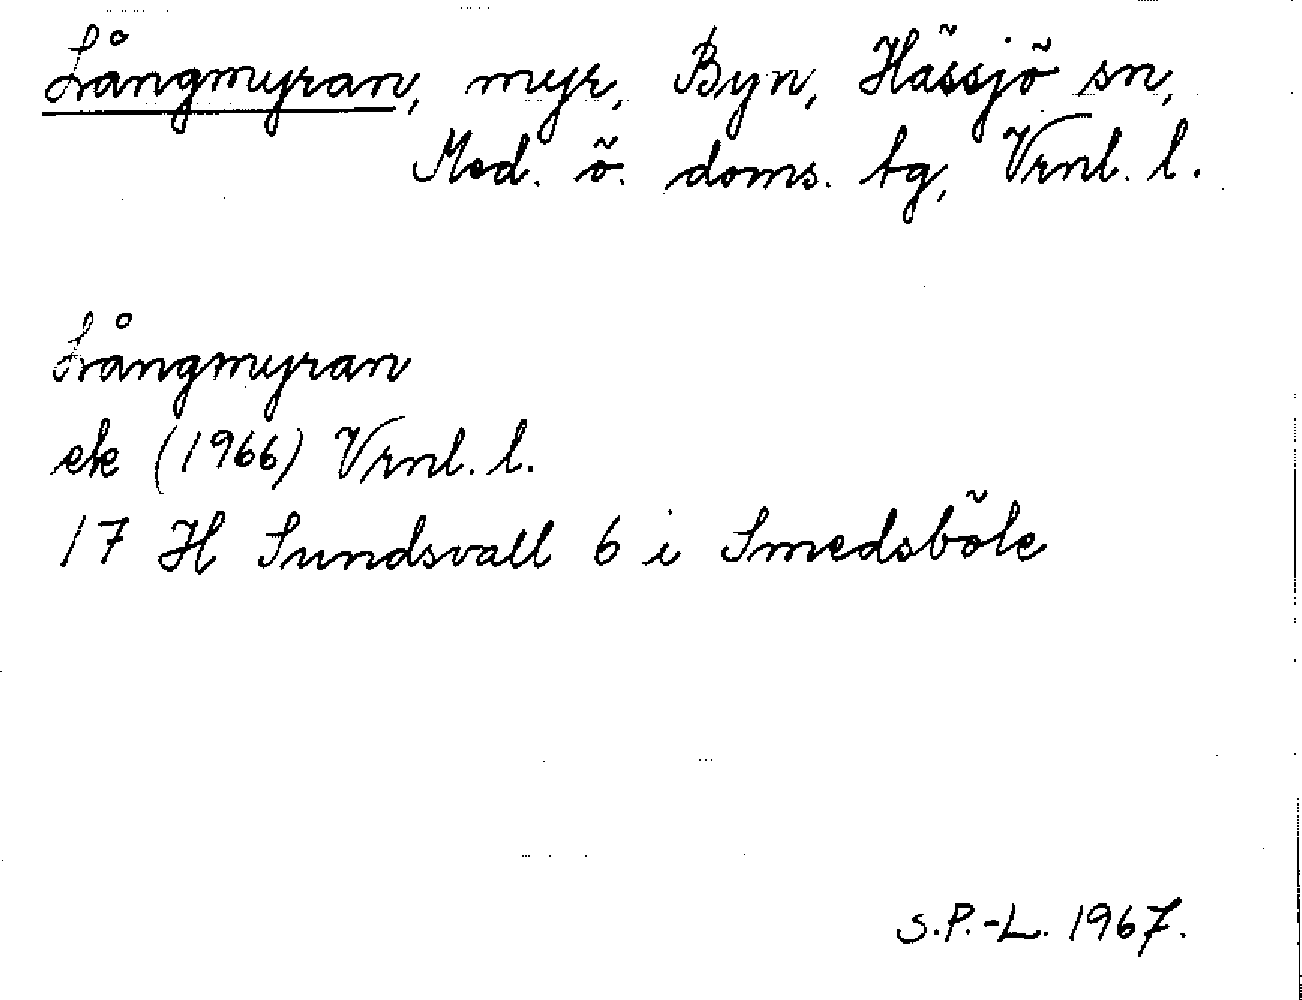 Långmyran, myr, Byn, Hässjö sn,
Med. ö. doms. tg, Vrnl. l.
Långmyran
ek (1966) Vrnl. l.
17 H Sundsvall 6 i Smedsböle
S.P.-L. 1967.